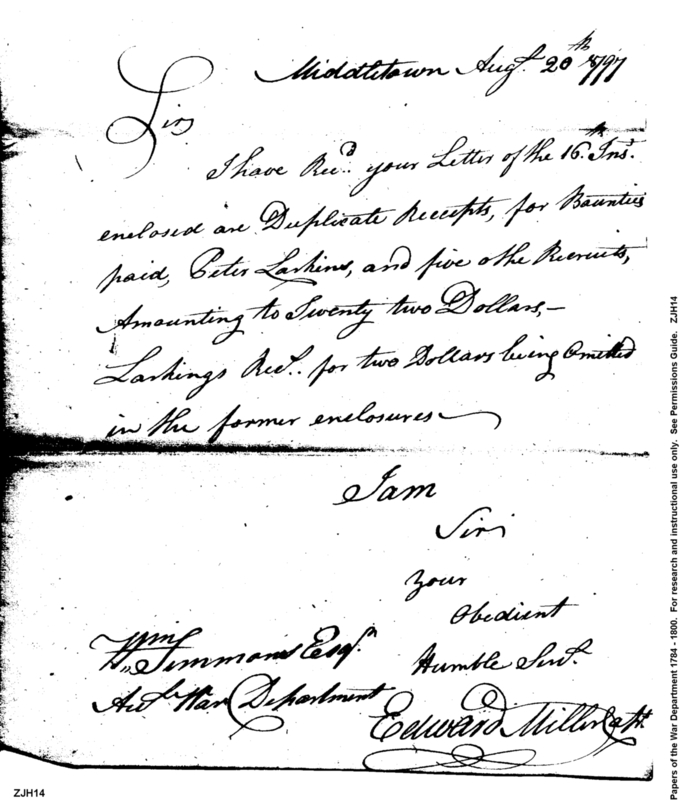 Middletown Augt. 20th 1797
Sir,
I have Recd. your Letter of the 16th Inst.
enclosed are Duplicate Receipts, for Bounties
paid, Peter Larkins, and five othe Recruits,
Amounting to Twenty two Dollars,—
Larkings Rect. for two Dollars being Omitted
in the former enclosures
I am
Sir
your
Obedient
Humble Servt.
Wm. Simmons Esqr.
Acct. War Department
Edward Miller Capt.
ZJH14
Papers of the War Department 1784 - 1800. For research and instructional use only. See Permissions Guide. ZJH14